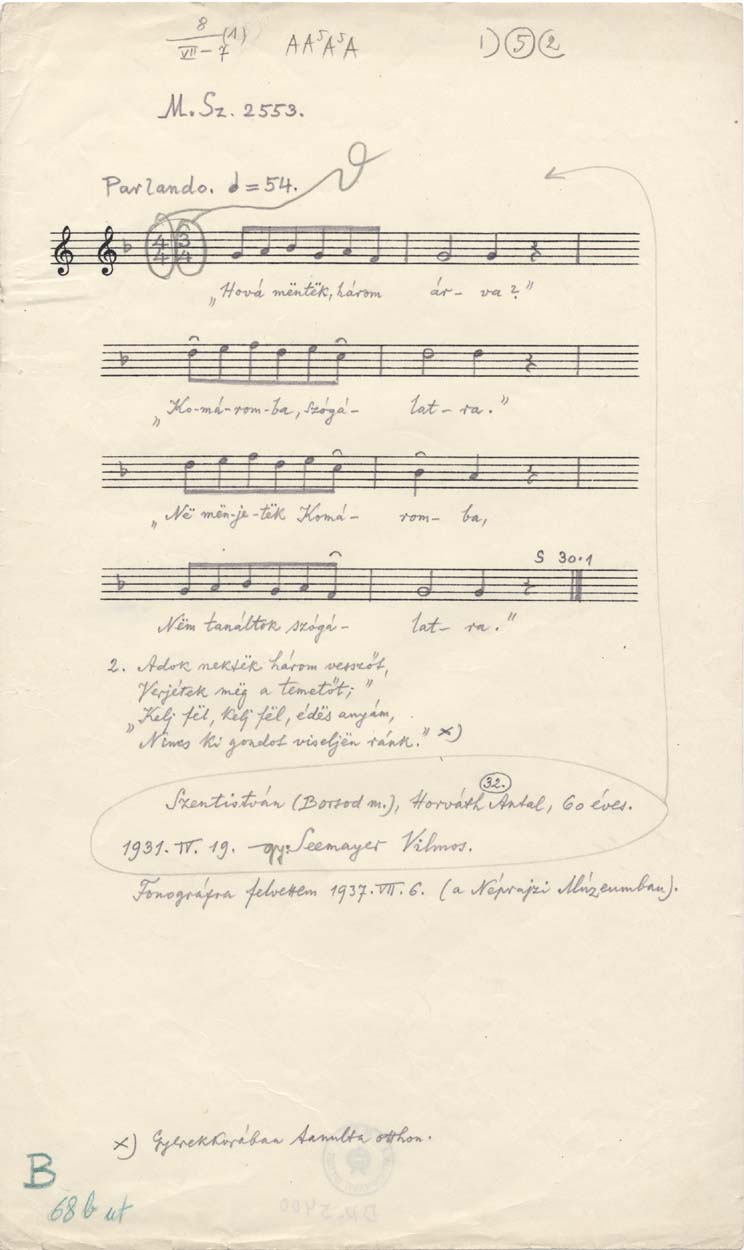 8
VII-7 (1) AA⁵A⁵A 1) 5 2
M. Sz. 2553.
Parlando. = 54.
4 3
4 4
„Hová mëntëk, három ár- va?"
„Ko-má-rom-ba, szógá- lat- ra."
„Në mën-je-tëk Komá- rom- ba,
S 30.1
Nëm tanáltok szógá- lat- ra."
2. Adok nektëk három vesszőt,
Verjétek mëg a temetőt;"
„Kelj fël, kelj fël, édës anyám,
Nincs ki gondot viseljën ránk." x)
32.
Szentistván (Borsod m.), Horváth Antal, 60 éves.
1931. IV. 19. gy: Seemayer Vilmos.
Fonográfra felvettem 1937. VII. 6. (a Néprajzi Múzeumban).
x) Gyerekkorában tanulta otthon.
B
68 b ut